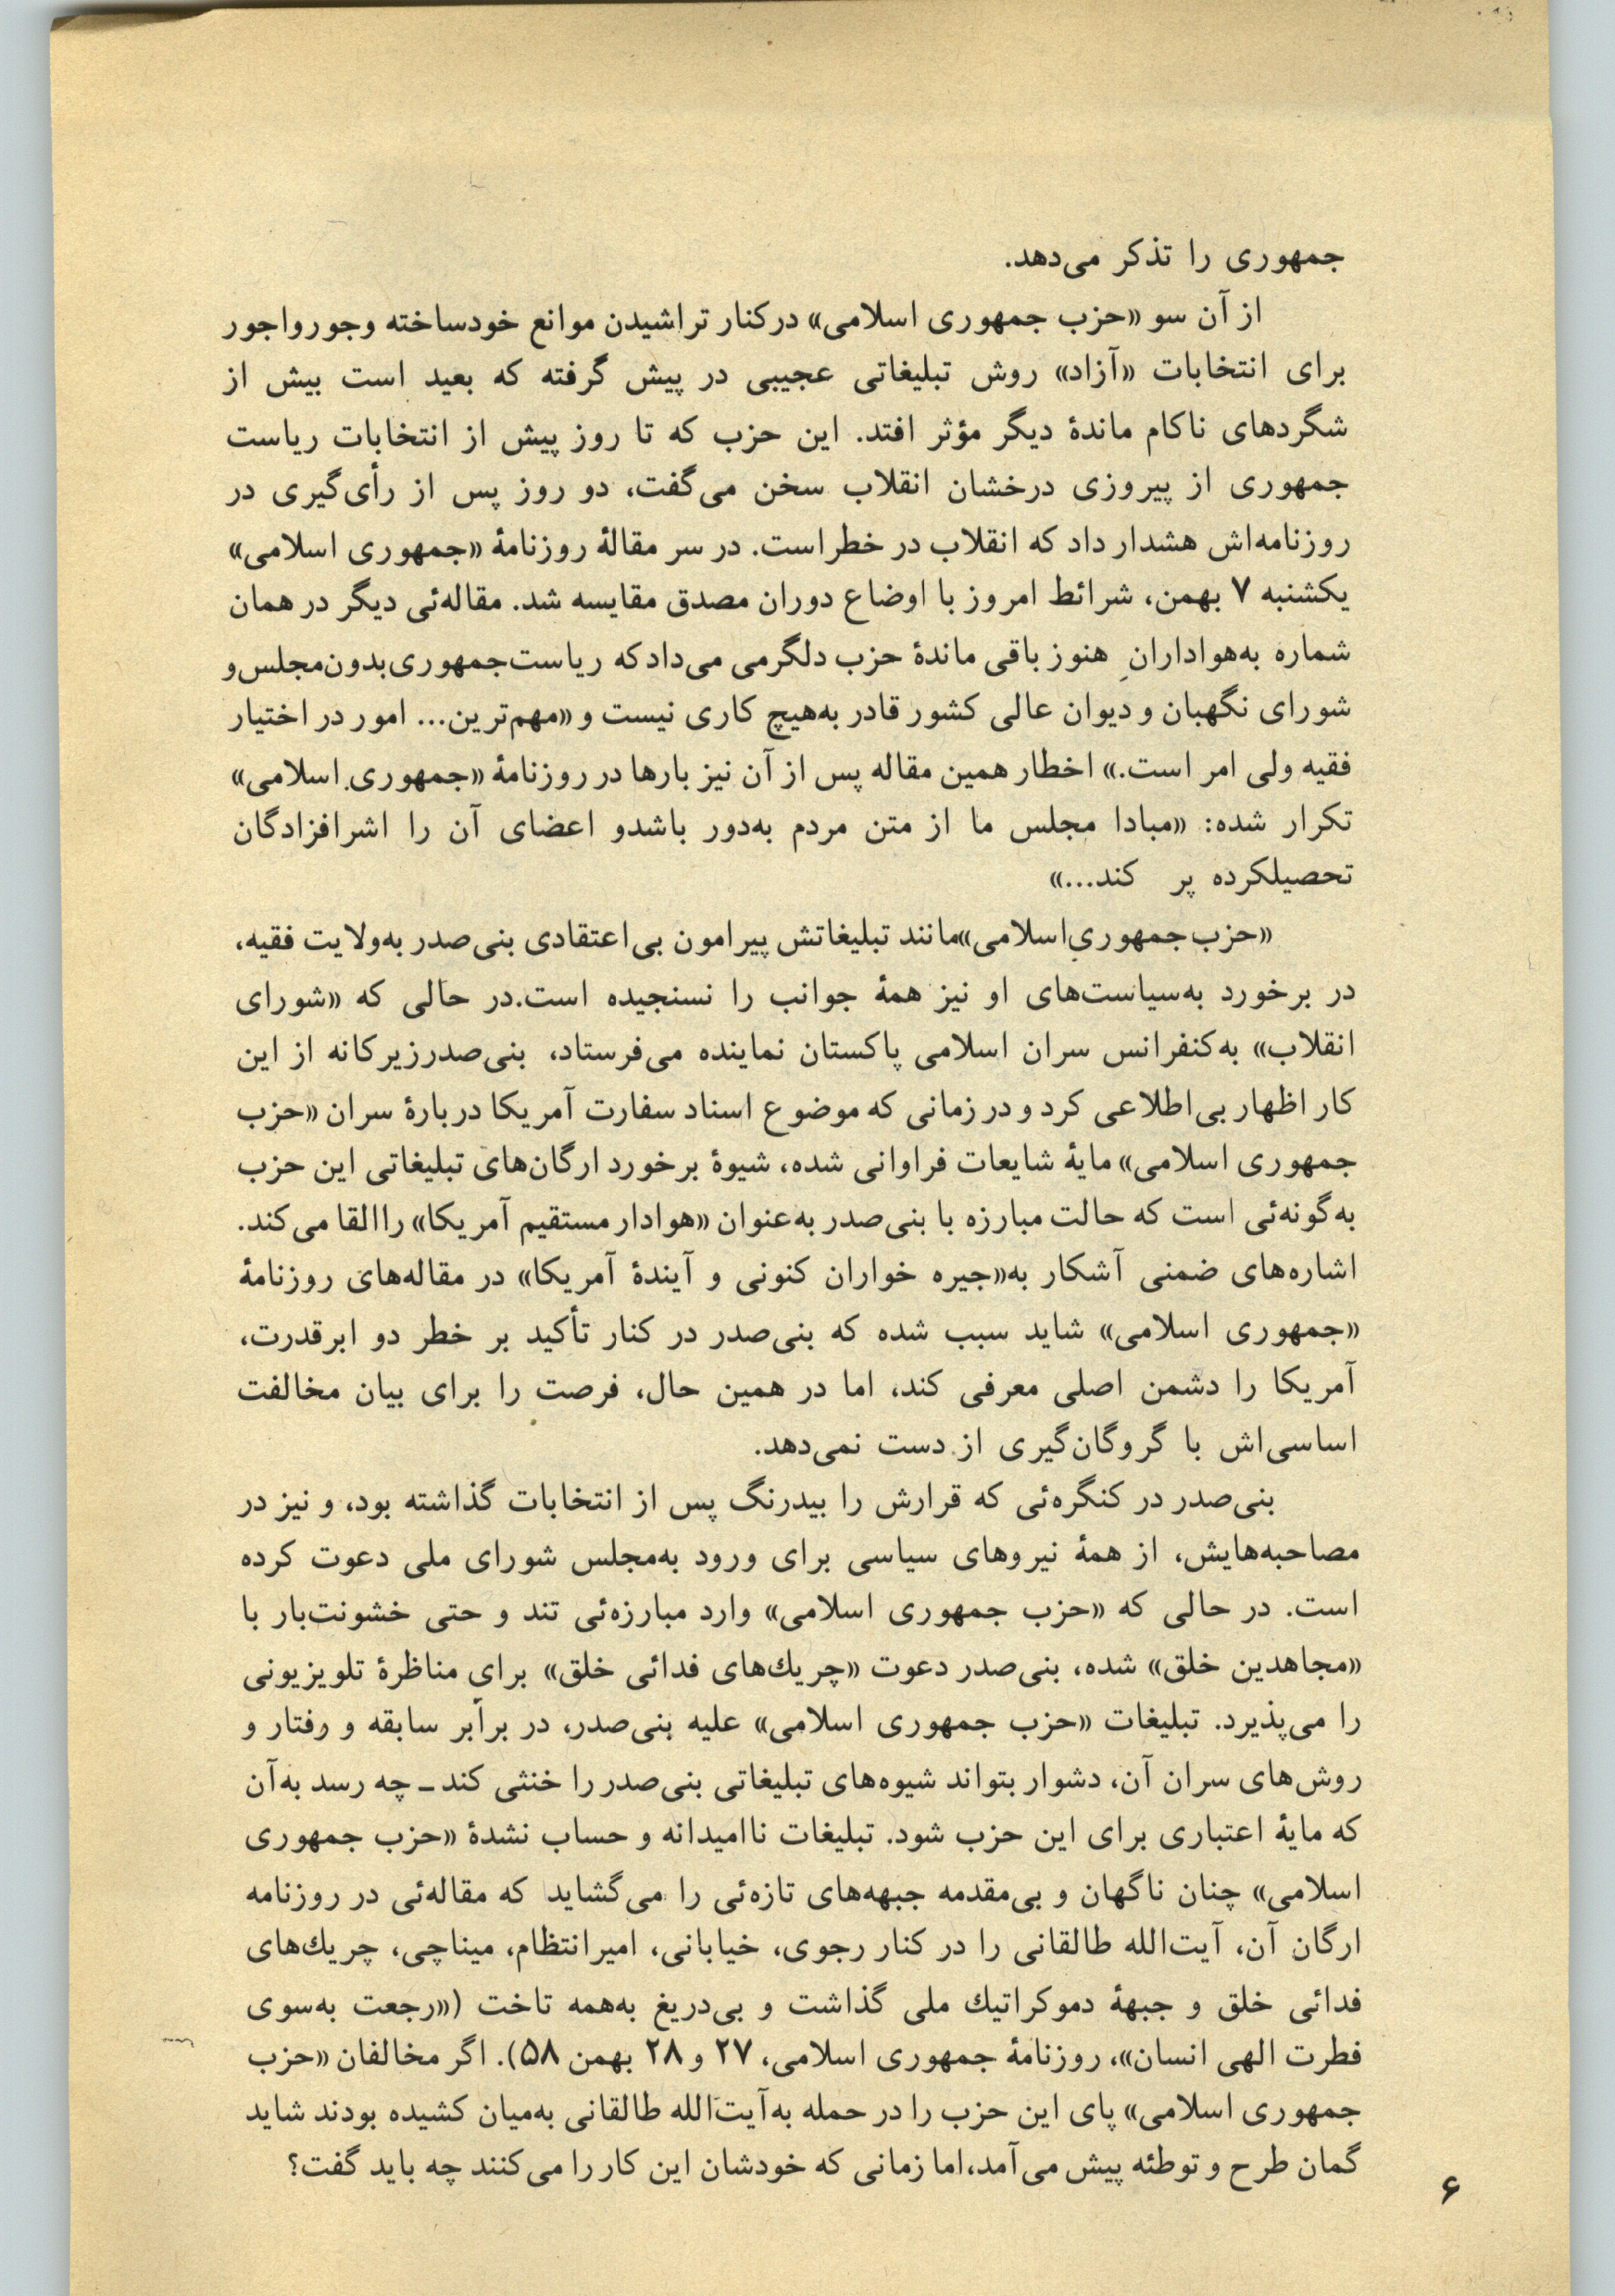 جمهوری را تذکر می‌دهد.
از آن سو «حزب جمهوری اسلامی» درکنار تراشیدن موانع خودساخته وجورواجور
برای انتخابات «آزاد» روش تبلیغاتی عجیبی در پیش گرفته که بعید است بیش از
شگردهای ناکام ماندهٔ دیگر مؤثر افتد. این حزب که تا روز پیش از انتخابات ریاست
جمهوری از پیروزی درخشان انقلاب سخن می‌گفت، دو روز پس از رأی‌گیری در
روزنامه‌اش هشدار داد که انقلاب در خطراست. در سر مقالهٔ روزنامهٔ «جمهوری اسلامی»
یکشنبه ۷ بهمن، شرائط امروز با اوضاع دوران مصدق مقایسه شد. مقاله‌ئی دیگر در همان
شماره به‌هوادارانِ هنوز باقی ماندهٔ حزب دلگرمی می‌داد که ریاست‌جمهوری‌بدون‌مجلس‌و
شورای نگهبان و دیوان عالی کشور قادر به‌هیچ کاری نیست و «مهم‌ترین... امور در اختیار
فقیه ولی امر است.» اخطار همین مقاله پس از آن نیز بارها در روزنامهٔ «جمهوری اسلامی»
تکرار شده: «مبادا مجلس ما از متن مردم به‌دور باشدو اعضای آن را اشرافزادگان
تحصیلکرده پر کند...»
«حزب‌جمهوری‌اسلامی»مانند تبلیغاتش پیرامون بی‌اعتقادی بنی‌صدر به‌ولایت فقیه،
در برخورد به‌سیاست‌های او نیز همهٔ جوانب را نسنجیده است.در حالی که «شورای
انقلاب» به‌کنفرانس سران اسلامی پاکستان نماینده می‌فرستاد، بنی‌صدرزیرکانه از این
کار اظهار بی‌اطلاعی کرد و در زمانی که موضوع اسناد سفارت آمریکا دربارهٔ سران «حزب
جمهوری اسلامی» مایهٔ شایعات فراوانی شده، شیوهٔ برخورد ارگان‌های تبلیغاتی این حزب
به‌گونه‌ئی است که حالت مبارزه با بنی‌صدر به‌عنوان «هوادار مستقیم آمریکا» راالقا می‌کند.
اشاره‌های ضمنی آشکار به«جیره خواران کنونی و آیندهٔ آمریکا» در مقاله‌های روزنامهٔ
«جمهوری اسلامی» شاید سبب شده که بنی‌صدر در کنار تأکید بر خطر دو ابرقدرت،
آمریکا را دشمن اصلی معرفی کند، اما در همین حال، فرصت را برای بیان مخالفت
اساسی‌اش با گروگان‌گیری از دست نمی‌دهد.
بنی‌صدر در کنگره‌ئی که قرارش را بیدرنگ پس از انتخابات گذاشته بود، و نیز در
مصاحبه‌هایش، از همهٔ نیروهای سیاسی برای ورود به‌مجلس شورای ملی دعوت کرده
است. در حالی که «حزب جمهوری اسلامی» وارد مبارزه‌ئی تند و حتی خشونت‌بار با
«مجاهدین خلق» شده، بنی‌صدر دعوت «چریك‌های فدائی خلق» برای مناظرهٔ تلویزیونی
را می‌پذیرد. تبلیغات «حزب جمهوری اسلامی» علیه بنی‌صدر، در برابر سابقه و رفتار و
روش‌های سران آن، دشوار بتواند شیوه‌های تبلیغاتی بنی‌صدر را خنثی کند ـ چه رسد به‌آن
که مایهٔ اعتباری برای این حزب شود. تبلیغات ناامیدانه و حساب نشدهٔ «حزب جمهوری
اسلامی» چنان ناگهان و بی‌مقدمه جبهه‌های تازه‌ئی را می‌گشاید که مقاله‌ئی در روزنامه
ارگان آن، آیت‌الله طالقانی را در کنار رجوی، خیابانی، امیرانتظام، میناچی، چریك‌های
فدائی خلق و جبههٔ دموکراتیك ملی گذاشت و بی‌دریغ به‌همه تاخت («رجعت به‌سوی
فطرت الهی انسان»، روزنامهٔ جمهوری اسلامی، ۲۷ و ۲۸ بهمن ۵۸). اگر مخالفان «حزب
جمهوری اسلامی» پای این حزب را در حمله به‌آیت‌الله طالقانی به‌میان کشیده بودند شاید
گمان طرح و توطئه پیش می‌آمد،اما زمانی که خودشان این کار را می‌کنند چه باید گفت؟
۶